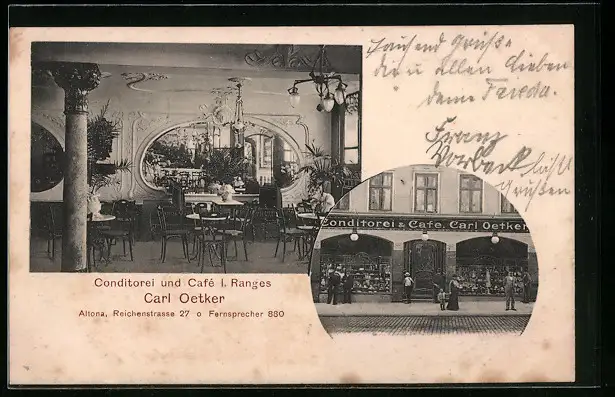 Tausend Grüße
dir u allen lieben
deine Frieda.
Franz
Vorbeck läßt
grüßen
Conditorei & Cafe, Carl Oetker
Conditorei und Café I. Ranges
Carl Oetker
Altona, Reichenstrasse 27 o Fernsprecher 880